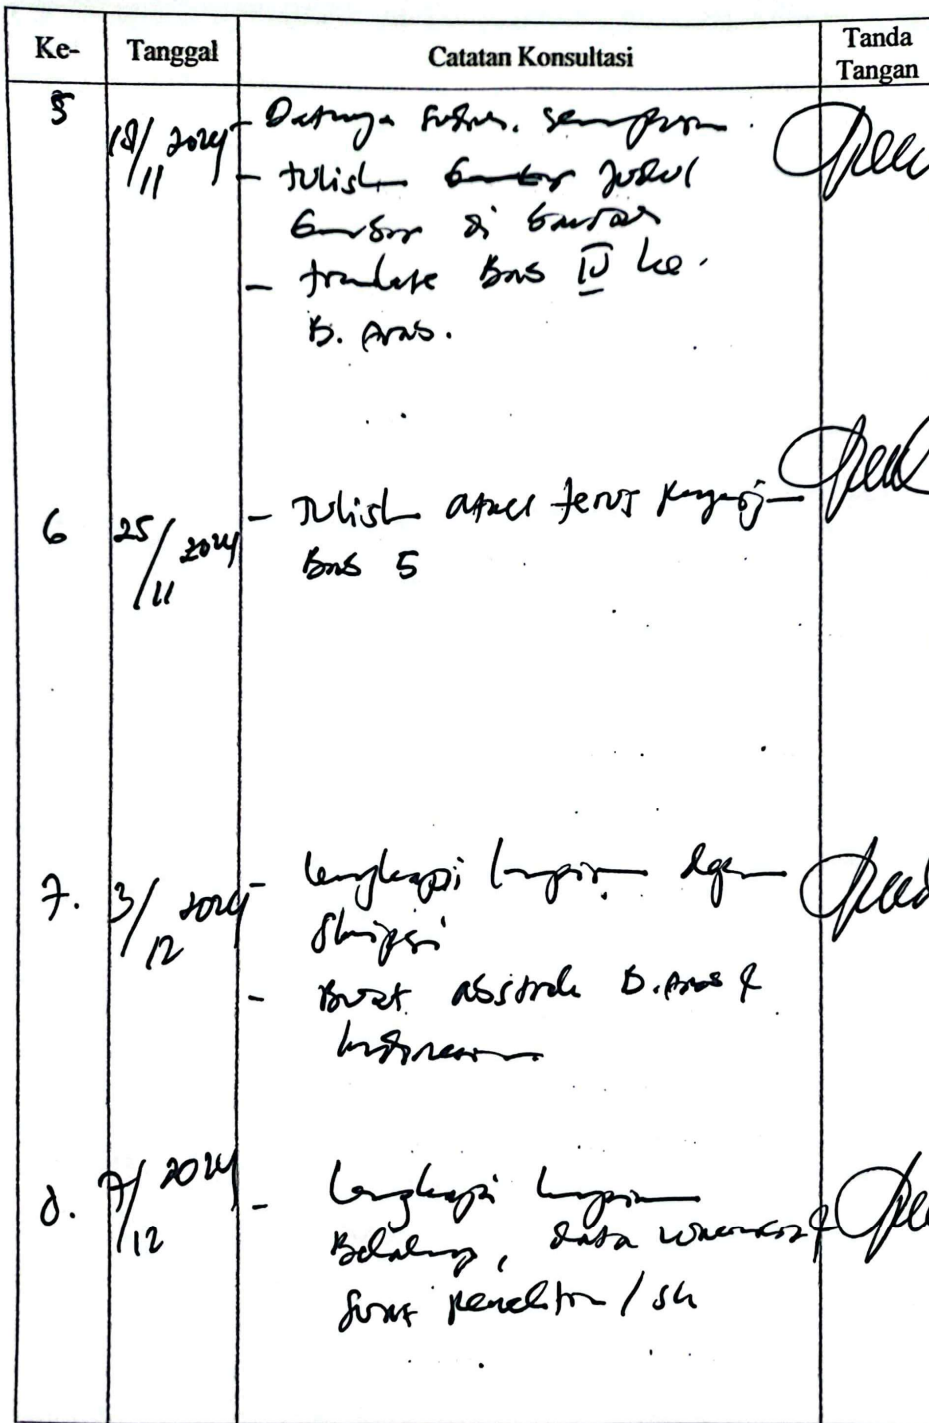 Ke- Tanggal Catatan Konsultasi Tanda Tangan
5 18/11 2024 - Datanya sempurna.
- tulish judul
di
- translate Bab IV ke.
B. Arab.
6 25/11 2024 - Tulish terus
Bab 5
7. 3/12 2024 - lengkapi lampiran dgn
Skripsi
- Buat abstrak B. Arab &
Indonesia
8. 7/12 2024 - lengkapi lampiran
Belakang, data wawancara &
surat penelitian / SK